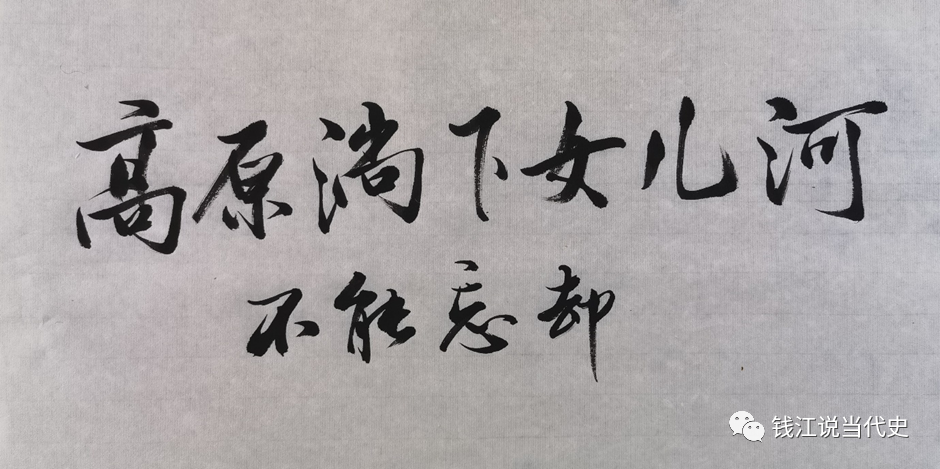 高原淌下女儿河
不能忘却
钱江说当代史